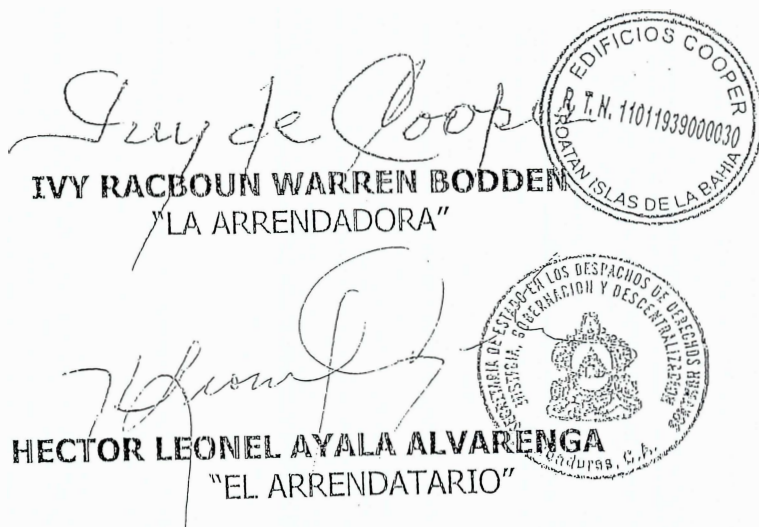 Ivy de Cooper
EDIFICIOS COOPER
R. T. N. 11011939000030
ROATAN ISLAS DE LA BAHIA
IVY RACBOUN WARREN BODDEN
"LA ARRENDADORA"
SECRETARIA DE ESTADO EN LOS DESPACHOS DE DERECHOS HUMANOS
JUSTICIA, GOBERNACION Y DESCENTRALIZACION
Honduras, C.A.
HECTOR LEONEL AYALA ALVARENGA
"EL ARRENDATARIO"